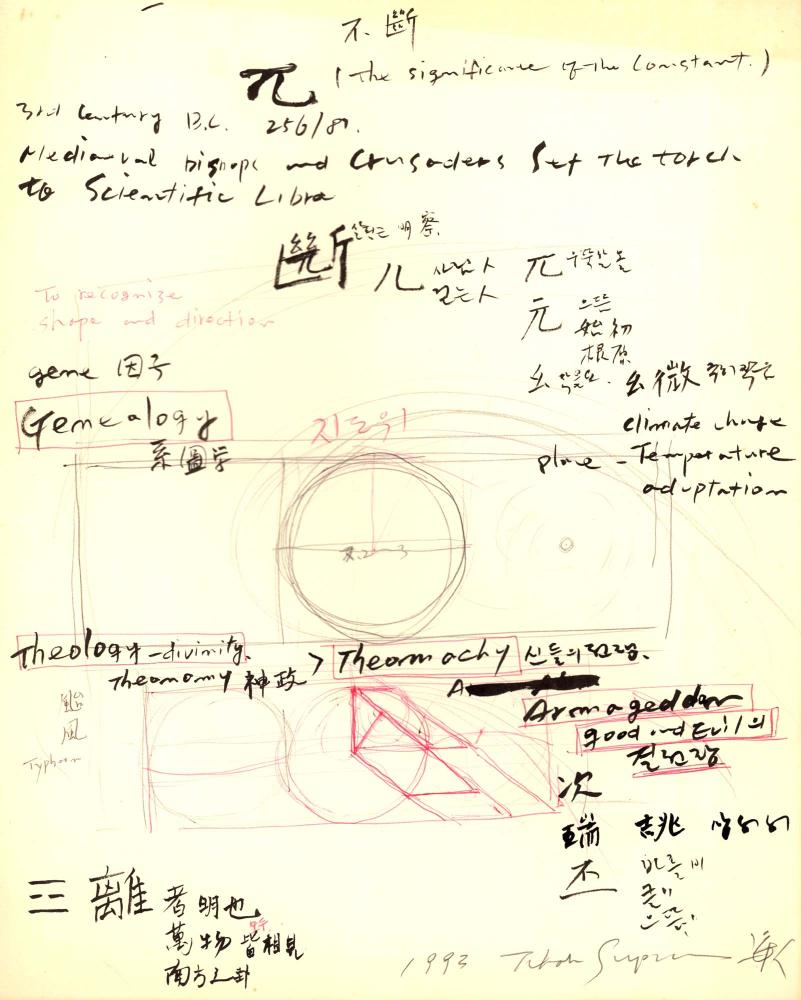 不 斷
π (the significance of the Constant.)
3rd Century B.C. 256/81.
Mediaeval Bishops and Crusaders Set the torch
to Scientific Libra
斷 明察
儿 사람人 兀 우뚝할올
걷는人
To recognize
shape and direction
元 으뜸
始初
根源
gene 因子
幺 작을요. 幺微
Genealogy
系圖学
지도위
climate change
place - Temperature
adaptation
Theology-divinity.
Theonomy 神政 > Theomachy 신들의전쟁.
A
Armageddon
good and Evil의
결전장
颱
風
Typhoon
次
瑞 吉兆
丕
클비
클이
으뜸
三 離者明也
萬物皆相見
南方之卦
1993